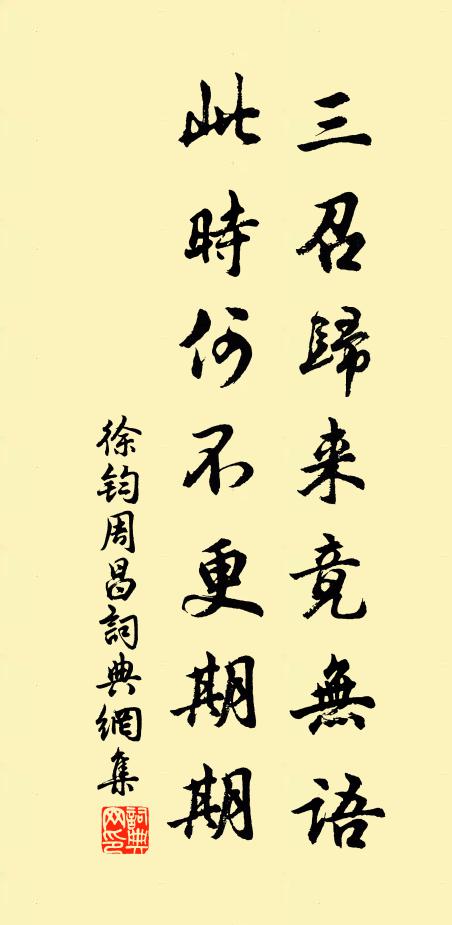 三召歸来竟無語
此時何不更期期
徐鈞周昌詞典網集
詞典
网印